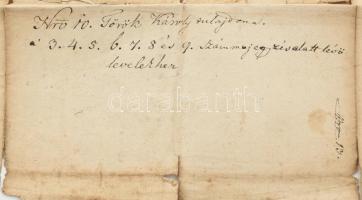 Nro 10. Török Károly tulajdona.
a' 3. 4. 5. 6. 7. 8 és 9. szám megjegyzés alatt levő
levelekhez
Nro 13.
darabanth